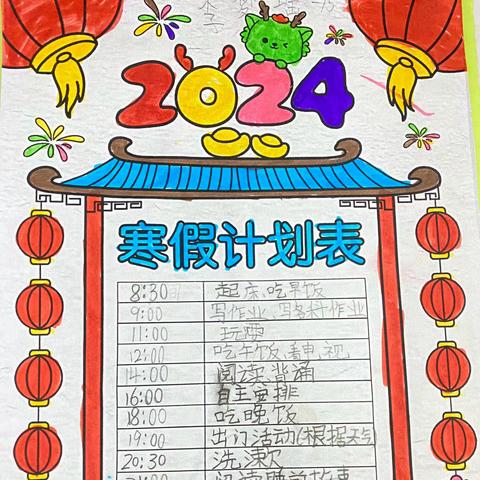 2024
寒假计划表
8:30 起床、吃早饭
9:00 写作业、写各科作业
11:00 玩耍
12:00 吃午饭、看电视
14:00 阅读、背诵
16:00 自主安排
18:00 吃晚饭
19:00 出门活动(根据天气)
20:30 洗漱